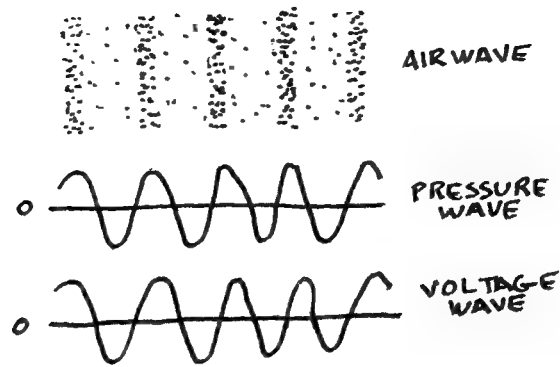 AIRWAVE
0
PRESSURE
WAVE
0
VOLTAGE
WAVE